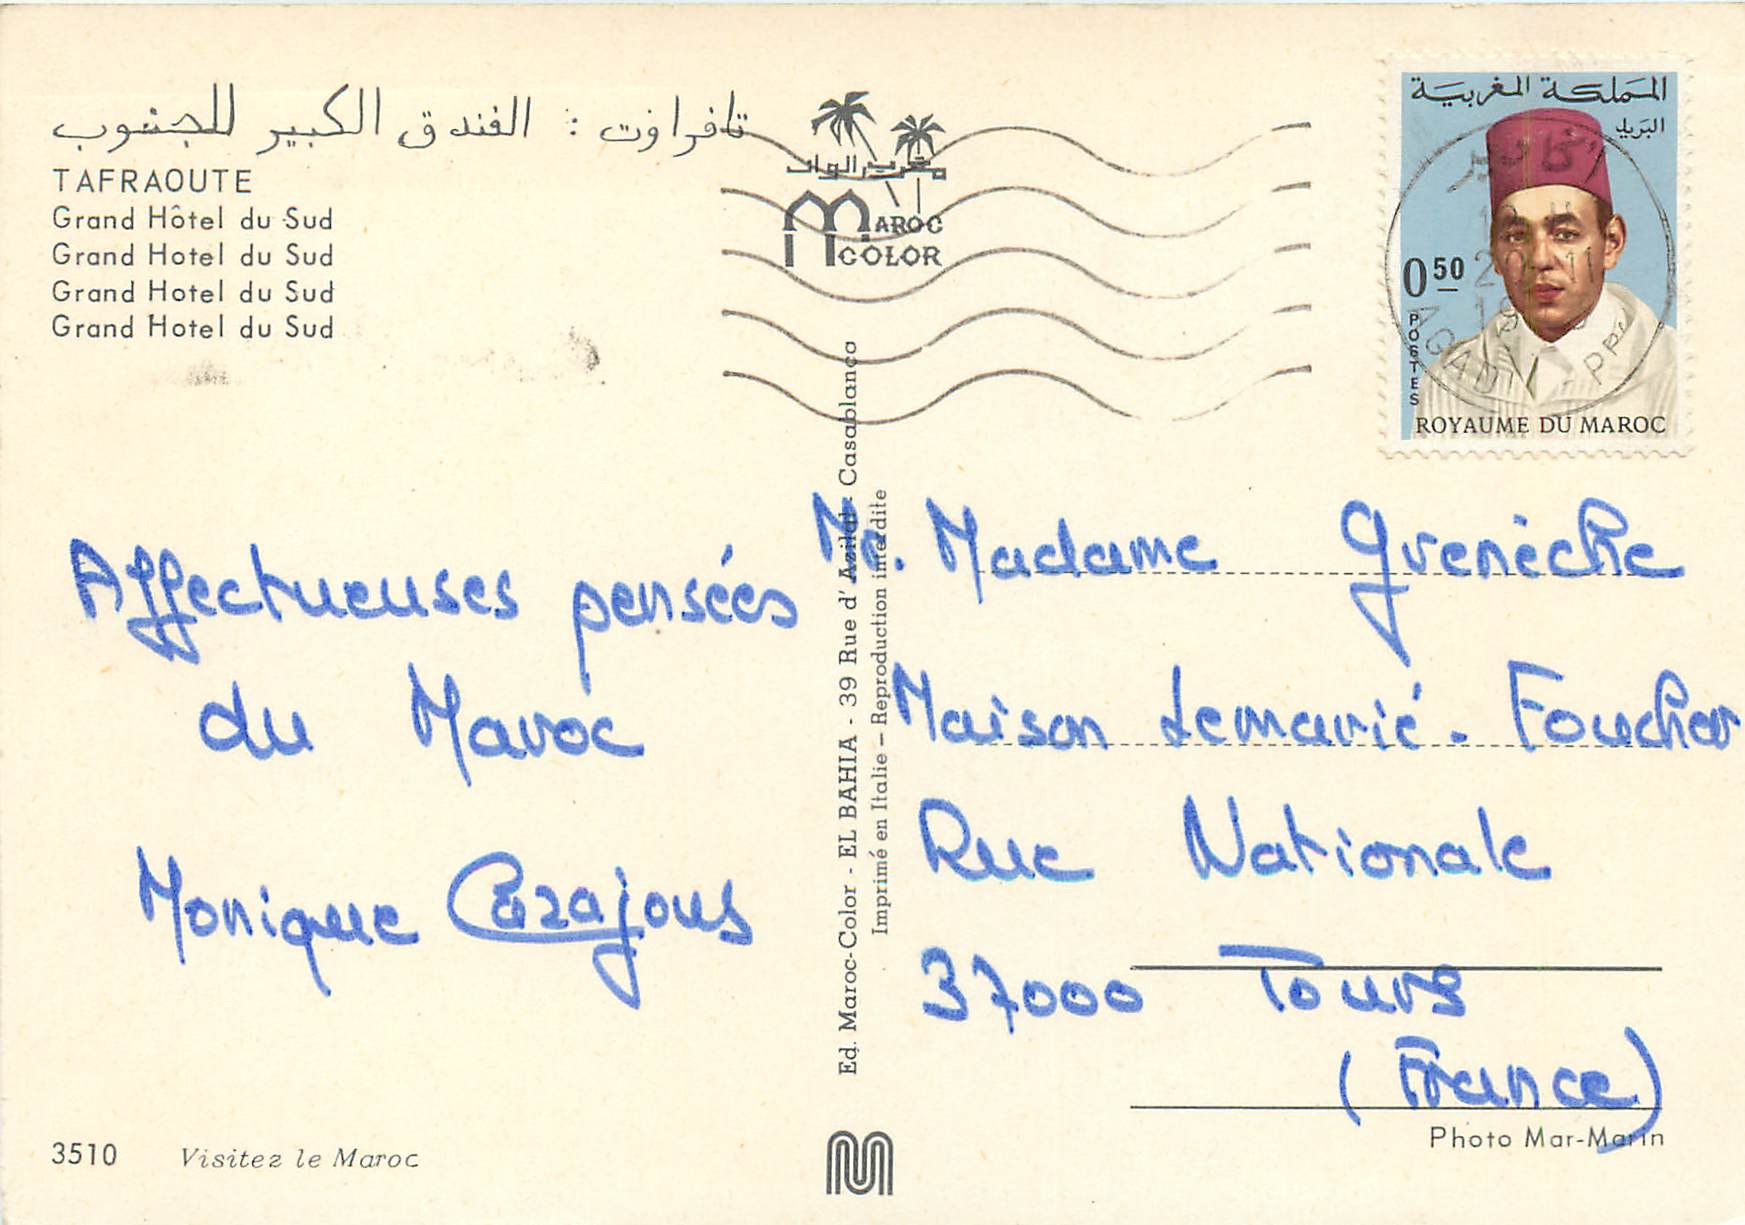 تافراوت : الفندق الكبير للجنوب
TAFRAOUTE
Grand Hôtel du Sud
Grand Hotel du Sud
Grand Hotel du Sud
Grand Hotel du Sud
مغرب الوان
MAROC
COLOR
المملكة المغربية
البريد
0.50
POSTES
ROYAUME DU MAROC
Affectueuses pensées
du Maroc
Monique Cazajous
Ed. Maroc-Color - EL BAHIA - 39 Rue d'Azilal - Casablanca
Imprimé en Italie – Reproduction interdite
Madame Grenèche
Maison Lemarié. Foucher
Rue Nationale
37000 Tours
(France)
3510 Visitez le Maroc
Photo Mar-Marin